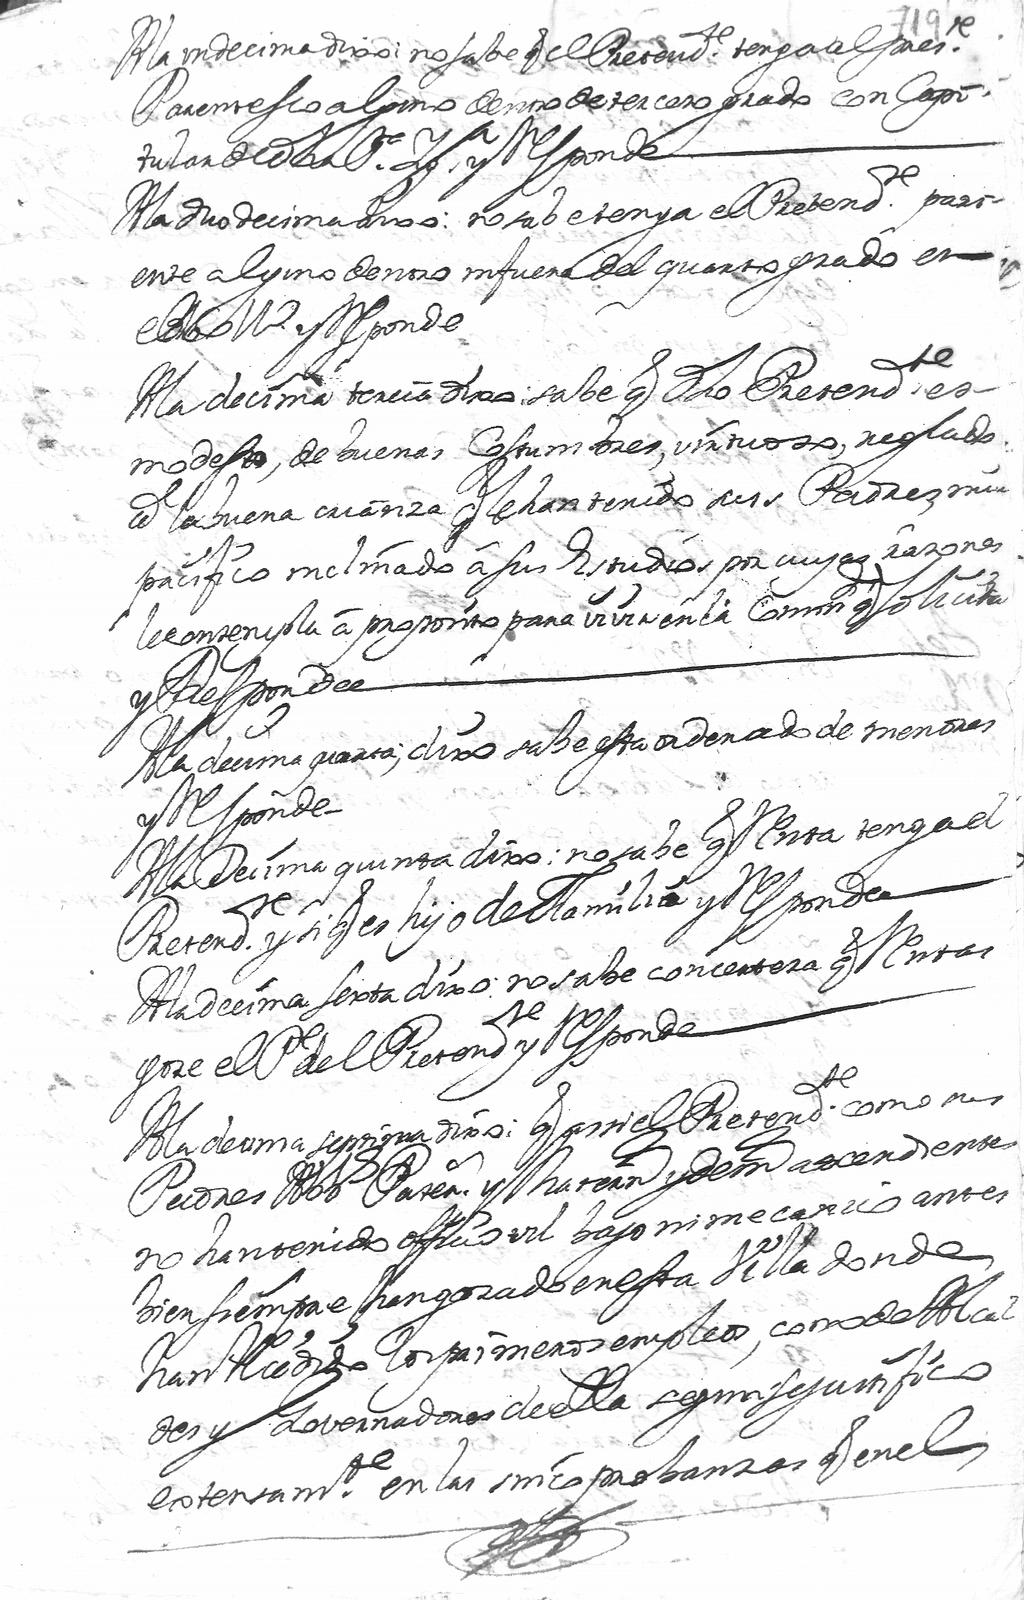 719
A la undecima dixo: no sabe q̃ el Pretend.te tenga al pres.te
Parentesco alguno dentro de tercero grado con Capi-
tular de dha S.ta Yg.a y Responde
A la duodecima dixo: no sabe tenga el Pretend.te pari-
ente alguno dentro ni fuera del quarto grado en
el y Responde
A la decima tercia dixo: sabe q̃ dho Pretend.te es
modesto, de buenas Costumbres, virtuoso, reglado
a la buena crianza q̃ le han tenido sus Padres, mui
pacifico inclinado á sus Estudios, por cuyas razones
le contempla á proposito para vivir en la Comun.d q̃ solicita
y Responde
A la decima quarta; dixo sabe esta ordenado de menores
y Responde
A la Decima quinta dixo: no sabe q̃ Renta tenga el
Pretend.te y si q̃ es hijo de Familia y Responde
A la decima sexta dixo: no sabe con certeza q̃ Rentas
goze el P.e del Pretend.te y Responde
A la decima septima dixo: q̃ assi el Pretend.te como sus
Padres Ab.s Patern. y Matern. y dem.s ascendientes
no han tenido officio vil bajo ni mecanico antes
bien siempre han gozado en esta Villa donde
han Recidido los primeros empleos, como de Alcal
des y Governadores de ella segun se justifico
extensam.te en las probanzas q̃ en el